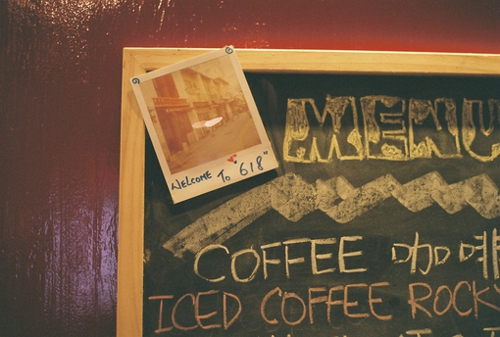 WELCOME To "618"
MENU
COFFEE 咖啡
ICED COFFEE ROCK